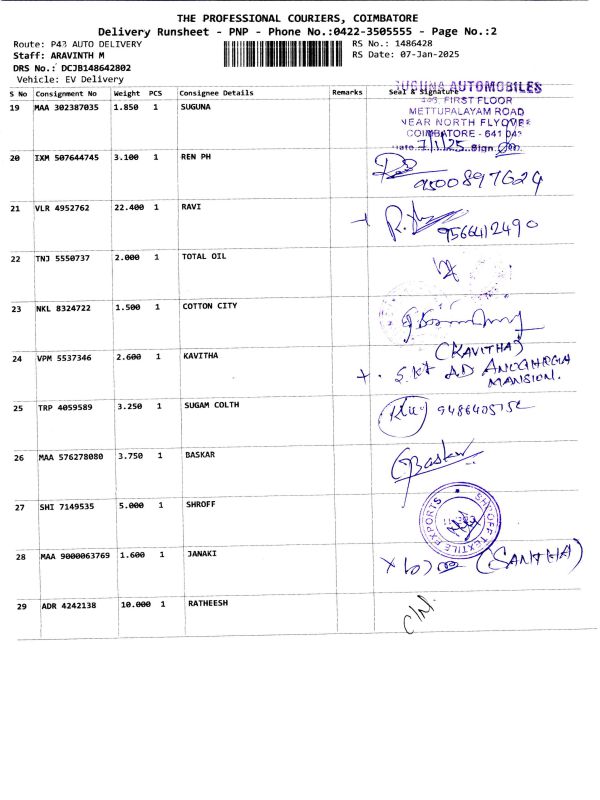 THE PROFESSIONAL COURIERS, COIMBATORE
Delivery Runsheet - PNP - Phone No.:0422-3505555 - Page No.:2
Route: P43 AUTO DELIVERY
RS No.: 1486428
Staff: ARAVINTH M
RS Date: 07-Jan-2025
DRS No.: DCJB148642802
Vehicle: EV Delivery
S No Consignment No Weight PCS Consignee Details Remarks Seal & Signature
SUGUNA AUTOMOBILES
FIRST FLOOR
METTUPALAYAM ROAD
NEAR NORTH FLYOVER
COIMBATORE - 641 043
Date 7/1/25 Sign
19 MAA 302387035 1.850 1 SUGUNA
20 IXM 507644745 3.100 1 REN PH
9500897624
21 VLR 4952762 22.400 1 RAVI
9566412490
22 TNJ 5550737 2.000 1 TOTAL OIL
23 NKL 8324722 1.500 1 COTTON CITY
(KAVITHA)
24 VPM 5537346 2.600 1 KAVITHA
MANSION.
25 TRP 4059589 3.250 1 SUGAM COLTH
26 MAA 576278080 3.750 1 BASKAR
Baskar
27 SHI 7149535 5.000 1 SHROFF
SHROFF TEXTILE EXPORTS
28 MAA 9000063769 1.600 1 JANAKI
(SANTHA)
29 ADR 4242138 10.000 1 RATHEESH